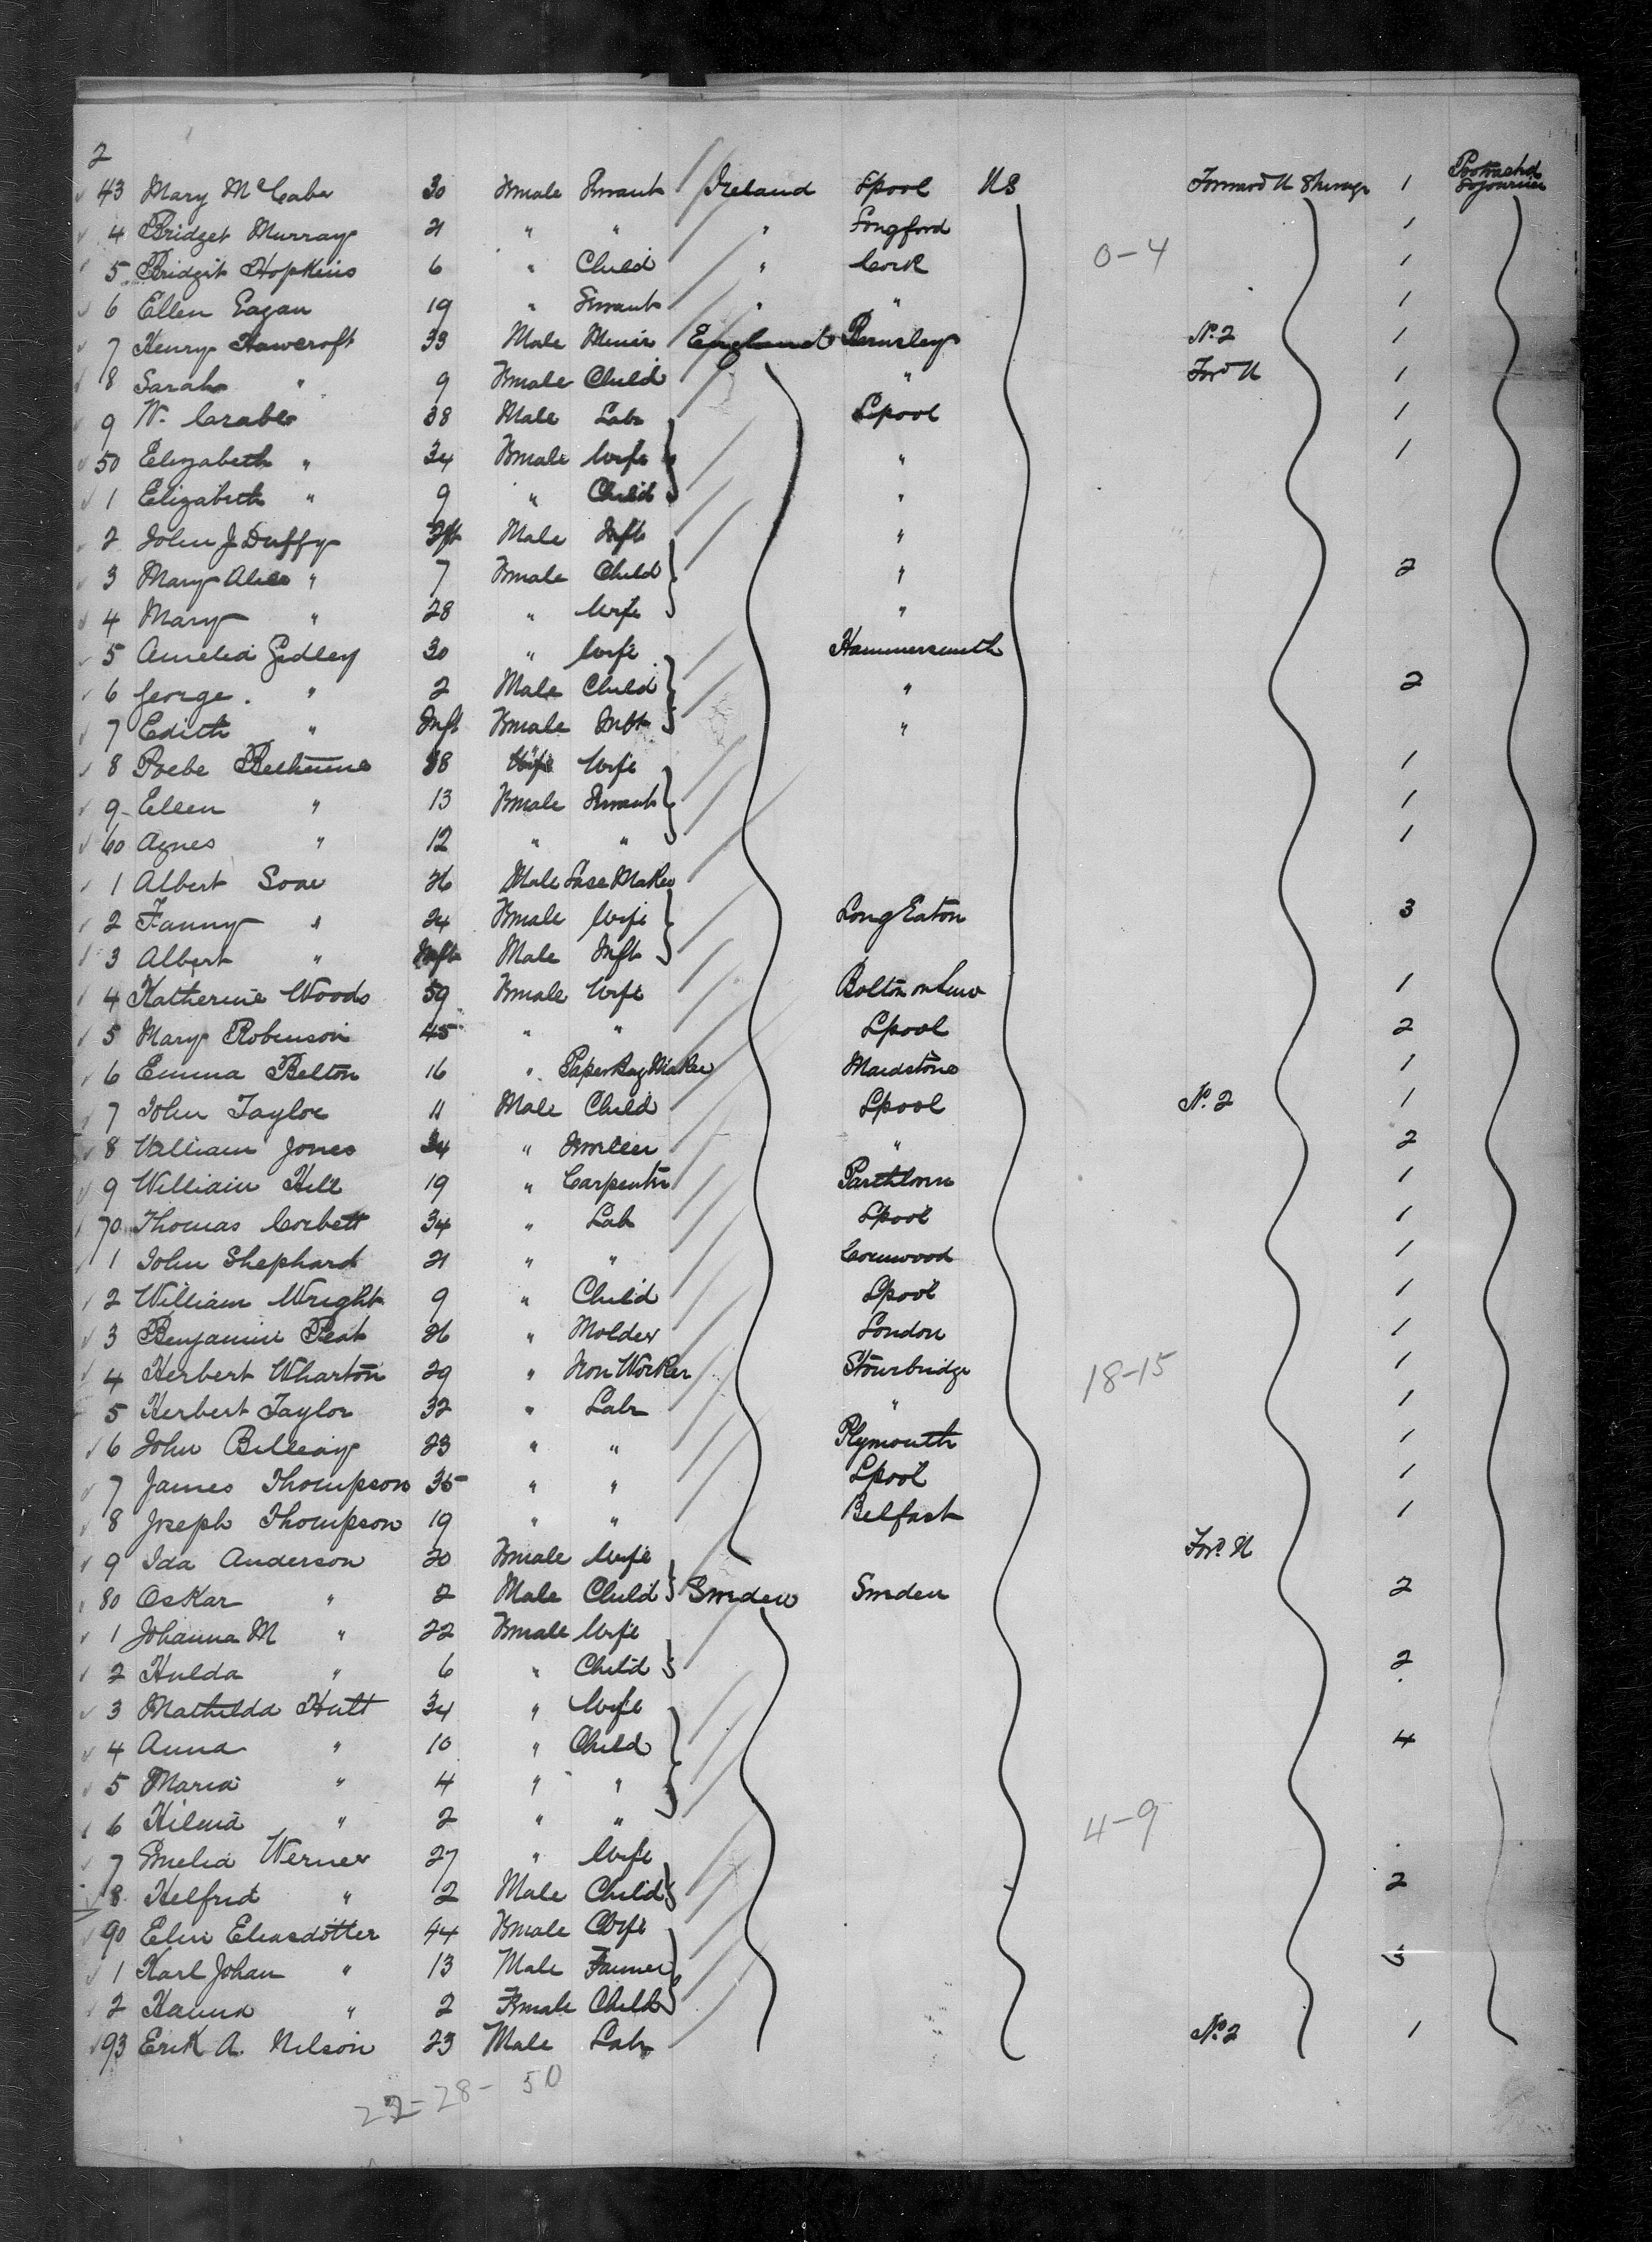 2
43 Mary McCabe 30 Female Servant Ireland Lpool US Forward U Steerage 1 Protracted Sojourner
4 Bridget Murray 21 " " " Longford 1
5 Bridgit Hopkins 6 " Child " Cork 0-4 1
6 Ellen Eagan 19 " Servant " " 1
7 Henry Hawcroft 33 Male Miner England Barnsley No. 2 1
8 Sarah " 9 Female Child " Ford U 1
9 W. Crabb 38 Male Labr Lpool 1
50 Elizabeth " 34 Female Wife " 1
1 Elizabeth " 9 " Child "
2 John J Duffy Inft Male Inft "
3 Mary Alice " 7 Female Child " 2
4 Mary " 28 " Wife "
5 Amelia Gidley 30 " Wife Hammersmith
6 George " 2 Male Child " 2
7 Edith " Inft Female Inft "
8 Poebe 38 Wife 1
9 Ellen " 13 Female Servant 1
60 Agnes " 12 " " 1
1 Albert Soar 26 Male Lace Maker
2 Fanny " 24 Female Wife Long Eaton 3
3 Albert " Inft Male Inft
4 Katherine Woods 59 Female Wife Bolton on 1
5 Mary Robinson 45 " " Lpool 2
6 Emma Belton 16 " Paper Bag Maker Maidstone 1
7 John Taylor 11 Male Child Lpool No. 2 1
8 William Jones 34 " " 2
9 William Hill 19 " Carpenter 1
70 Thomas Corbett 34 " Lab Lpool 1
1 John Shephard 21 " " Cornwood 1
2 William Wright 9 " Child Lpool 1
3 Benjamin Peat 26 " Molder London 1
4 Herbert Wharton 29 " Iron Worker Stourbridge 18-15 1
5 Herbert Taylor 32 " Labr " 1
6 John 23 " " Plymouth 1
7 James Thompson 35 " " Lpool 1
8 Joseph Thompson 19 " " Belfast 1
9 Ida Anderson 20 Female Wife For. U
80 Oskar " 2 Male Child Sweden Sweden 2
1 Johanna M " 22 Female Wife
2 Hulda " 6 " Child 2
3 Mathilda Hult 34 " Wife
4 Anna " 10 " Child 4
5 Maria " 4 " "
6 Hilma " 2 " "
4-9
7 Emelia Werner 27 " Wife
8 Helfrid " 2 Male Child 2
90 Elin Eliasdotter 44 Female Wife
1 Karl Johan " 13 Male Farmer 3
2 Hanna " 2 Female Child
93 Erik A. Nelson 23 Male Labr No. 2 1
22-28- 50